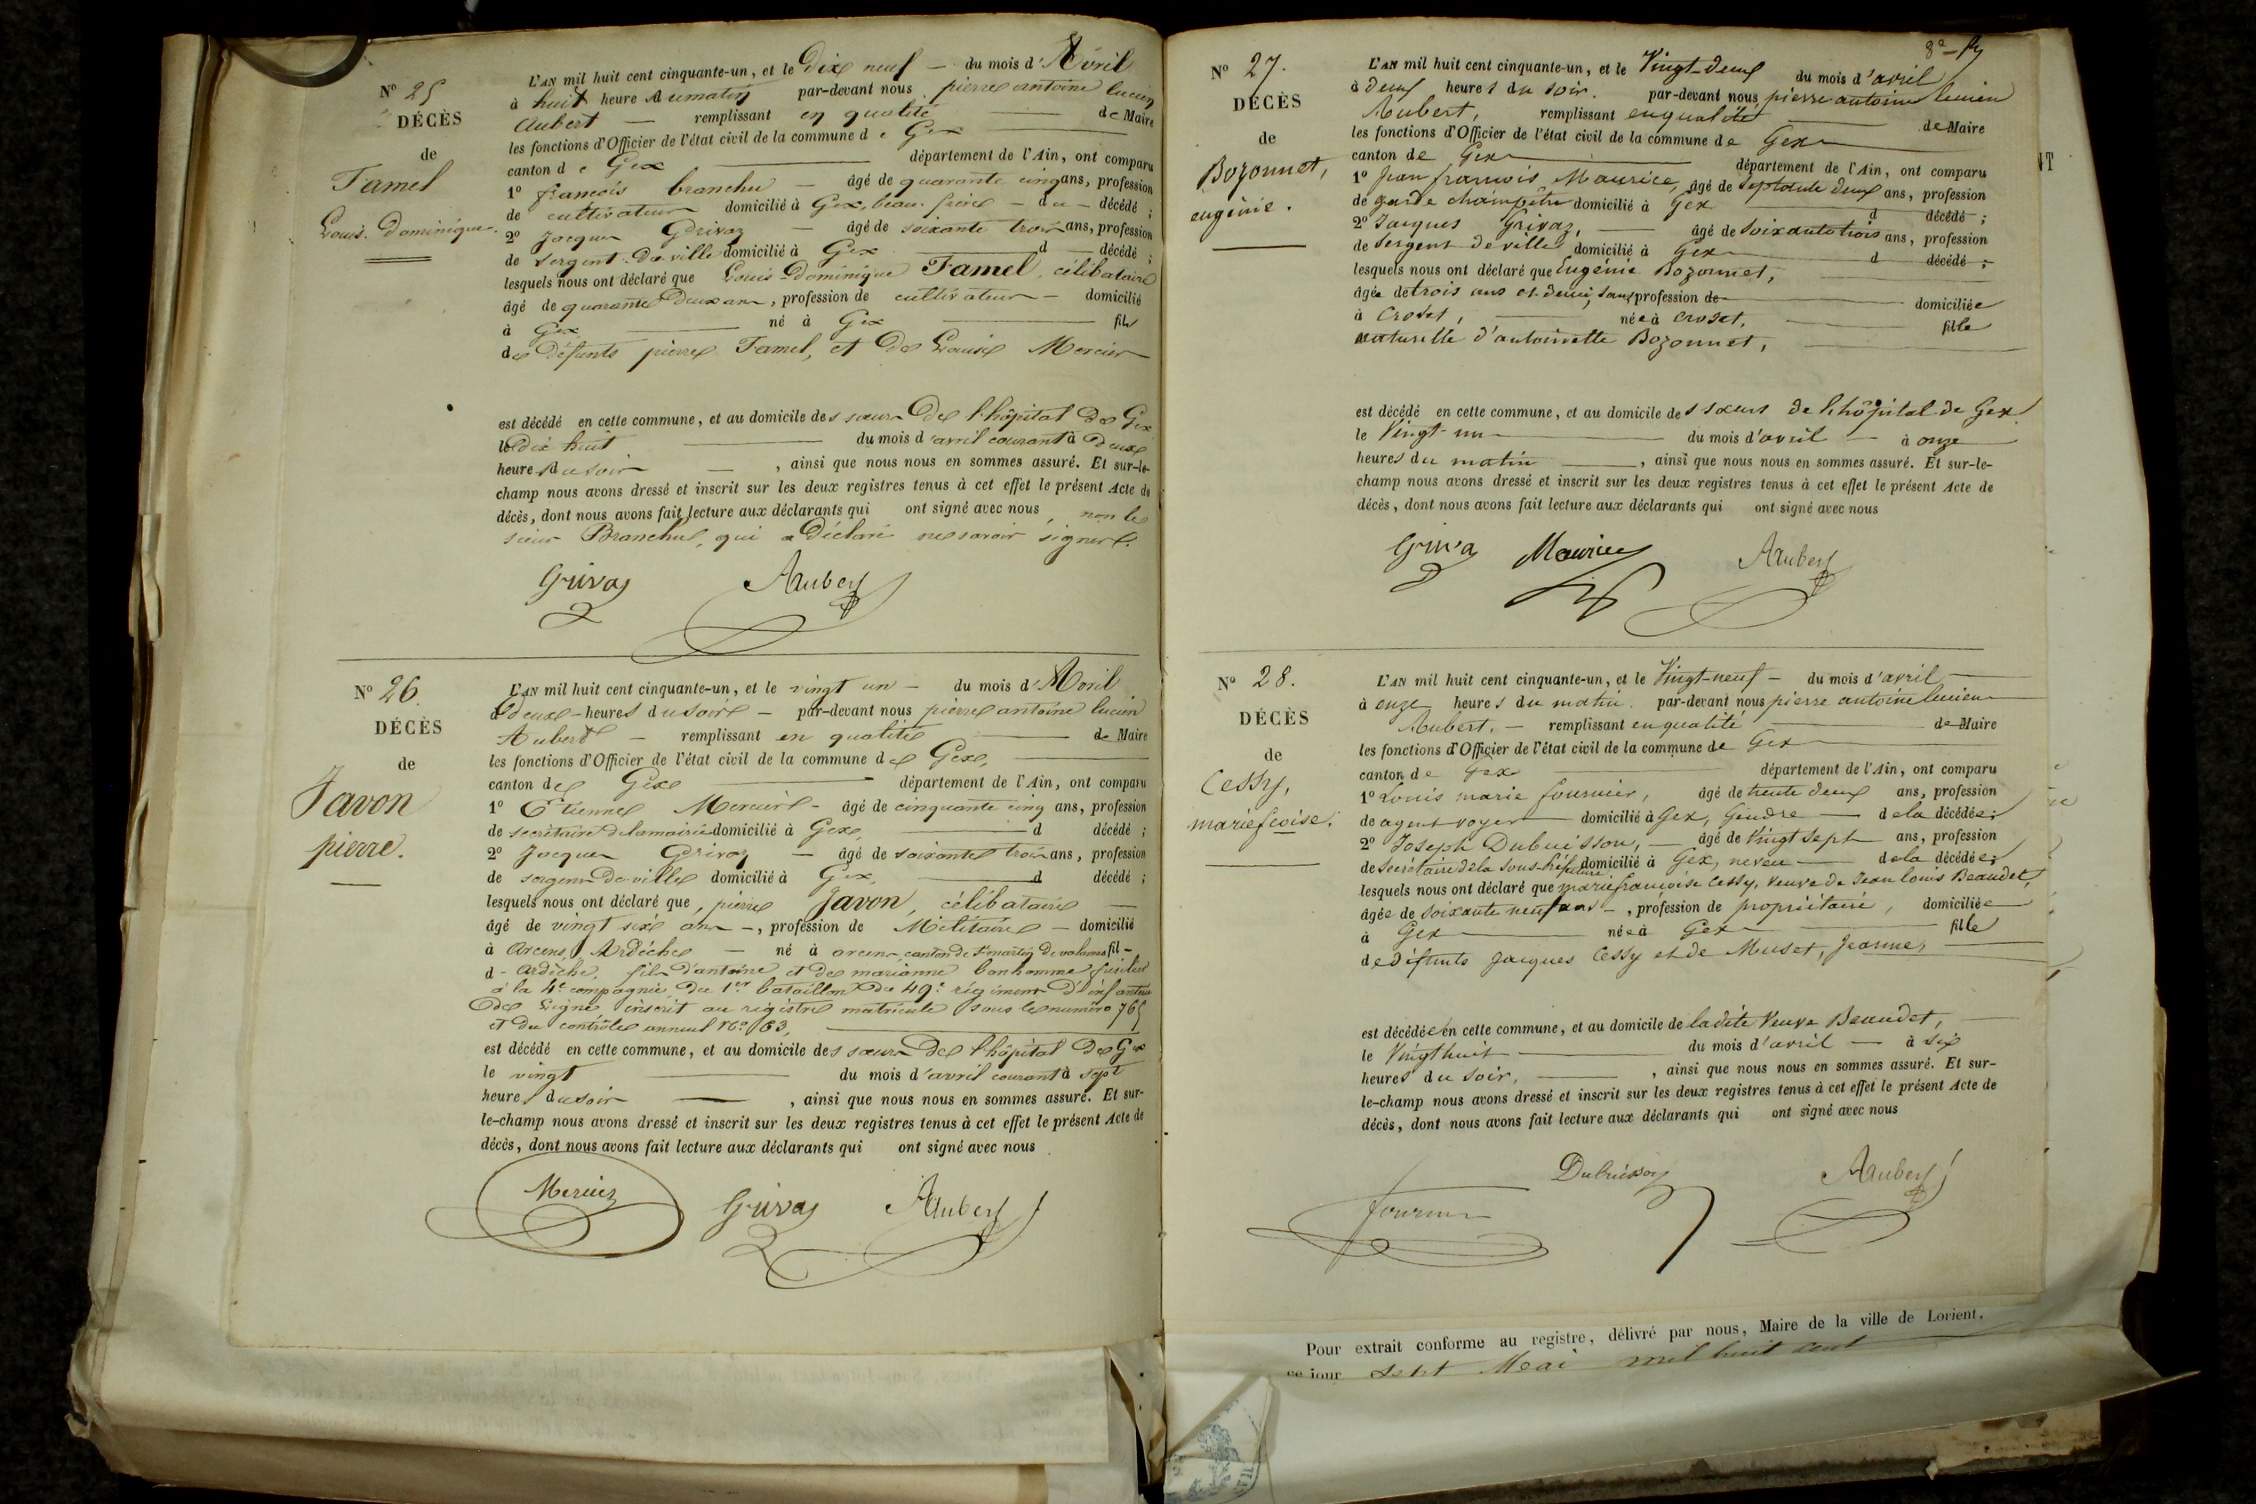 N° 25
DÉCÈS
de
Famel
Louis Dominique.
L'AN mil huit cent cinquante-un, et le Dix neuf — du mois d'Avril
à huit heure du matin par-devant nous pierre antoine lucien
Aubert — remplissant en qualité — de Maire
les fonctions d'Officier de l'état civil de la commune de Gex
canton de Gex — département de l'Ain, ont comparu
1° françois branchu — âgé de quarante cinq ans, profession
de cultivateur domicilié à Gex, beau-frère — du — décédé ;
2° Jacques Grivaz — âgé de soixante trois ans, profession
de sergent de ville domicilié à Gex — d — décédé ;
lesquels nous ont déclaré que Louis Dominique Famel, célibataire
âgé de quarante Deux ans, profession de cultivateur — domicilié
à Gex — né à Gex — fils
des défunts pierre Famel, et de Louise Mercier
est décédé en cette commune, et au domicile des sœurs de l'hôpital de Gex
le dix huit — du mois d'avril courant à Deux
heures du soir — , ainsi que nous nous en sommes assuré. Et sur-le-
champ nous avons dressé et inscrit sur les deux registres tenus à cet effet le présent Acte de
décès, dont nous avons fait lecture aux déclarants qui ont signé avec nous, non le
sieur Branchu, qui a Déclaré ne savoir signer.
Grivaz Aubert
N° 26
DÉCÈS
de
Javon
pierre.
L'AN mil huit cent cinquante-un, et le vingt un — du mois d'Avril
à deux — heures du soir — par-devant nous pierre antoine lucien
Aubert — remplissant en qualité — de Maire
les fonctions d'Officier de l'état civil de la commune de Gex,
canton de Gex — département de l'Ain, ont comparu
1° Etienne Mercier — âgé de cinquante cinq ans, profession
de secrétaire de la mairie domicilié à Gex, — d décédé ;
2° Jacques Grivaz — âgé de soixante trois ans, profession
de sergent de ville domicilié à Gex, — d décédé ;
lesquels nous ont déclaré que pierre Javon, célibataire —
âgé de vingt six ans —, profession de Militaire — domicilié
à Arcens, Ardèche — né à arcens, canton de St martin de valamas fil —
d - ardèche, fils d'antoine et de marianne bonhomme fusilier
à la 4e compagnie du 1er bataillon du 49e régiment d'infanterie
de Ligne inscrit au registre matricule sous le numéro 765
et du contrôle annuel N° 163,
est décédé en cette commune, et au domicile des sœurs de l'hôpital de Gex
le vingt — du mois d'avril courant à sept
heures du soir — , ainsi que nous nous en sommes assuré. Et sur-
le-champ nous avons dressé et inscrit sur les deux registres tenus à cet effet le présent Acte de
décès, dont nous avons fait lecture aux déclarants qui ont signé avec nous.
Mercier Grivaz Aubert
N° 27.
DÉCÈS
de
Bozonnet,
eugénie.
L'AN mil huit cent cinquante-un, et le Vingt-deux du mois d'avril
à deux heures du soir. par-devant nous pierre antoine lucien
Aubert, remplissant en qualité — de Maire
les fonctions d'Officier de l'état civil de la commune de Gex
canton de Gex — département de l'Ain, ont comparu
1° Jean françois Maurice, âgé de septante deux ans, profession
de garde champêtre domicilié à Gex — d décédé ;
2° Jacques Grivaz, — âgé de soixante trois ans, profession
de Sergent de ville domicilié à Gex — d décédé ;
lesquels nous ont déclaré que Eugénie Bozonnet,
âgée de trois ans et demi, sans profession de — domiciliée
à Crozet, — née à Crozet, — fille
naturelle d'antoinette Bozonnet,
est décédé en cette commune, et au domicile des sœurs de l'hôpital de Gex
le Vingt-un — du mois d'avril — à onze
heures du matin — , ainsi que nous nous en sommes assuré. Et sur-le-
champ nous avons dressé et inscrit sur les deux registres tenus à cet effet le présent Acte de
décès, dont nous avons fait lecture aux déclarants qui ont signé avec nous
Griva Maurice Aubert
N° 28.
DÉCÈS
de
Cessy,
marie fcoise.
L'AN mil huit cent cinquante-un, et le Vingt-neuf — du mois d'avril —
à onze heures du matin. par-devant nous pierre antoine lucien
Aubert. — remplissant en qualité — de Maire
les fonctions d'Officier de l'état civil de la commune de Gex
canton de Gex — département de l'Ain, ont comparu
1° Louis marie fournier, âgé de trente deux ans, profession
de agent voyer — domicilié à Gex, Gendre — de la décédée ;
2° Joseph Dubuisson, — âgé de Vingt sept ans, profession
de Secrétaire de la Sous-Préfecture domicilié à Gex, neveu — de la décédée ;
lesquels nous ont déclaré que marie françoise Cessy, veuve de Jean louis Beaudet,
âgée de soixante neuf ans —, profession de propriétaire, domiciliée
à Gex — née à Gex — fille
de défunts Jacques Cessy et de Muset, Jeanne,
est décédée en cette commune, et au domicile de ladite Veuve Beaudet,
le Vingt huit — du mois d'avril — à six
heures du soir, — , ainsi que nous nous en sommes assuré. Et sur-
le-champ nous avons dressé et inscrit sur les deux registres tenus à cet effet le présent Acte de
décès, dont nous avons fait lecture aux déclarants qui ont signé avec nous
Dubuisson Aubert
fournier
Pour extrait conforme au registre, délivré par nous, Maire de la ville de Lorient,
ce jour sept Mai mil huit cent